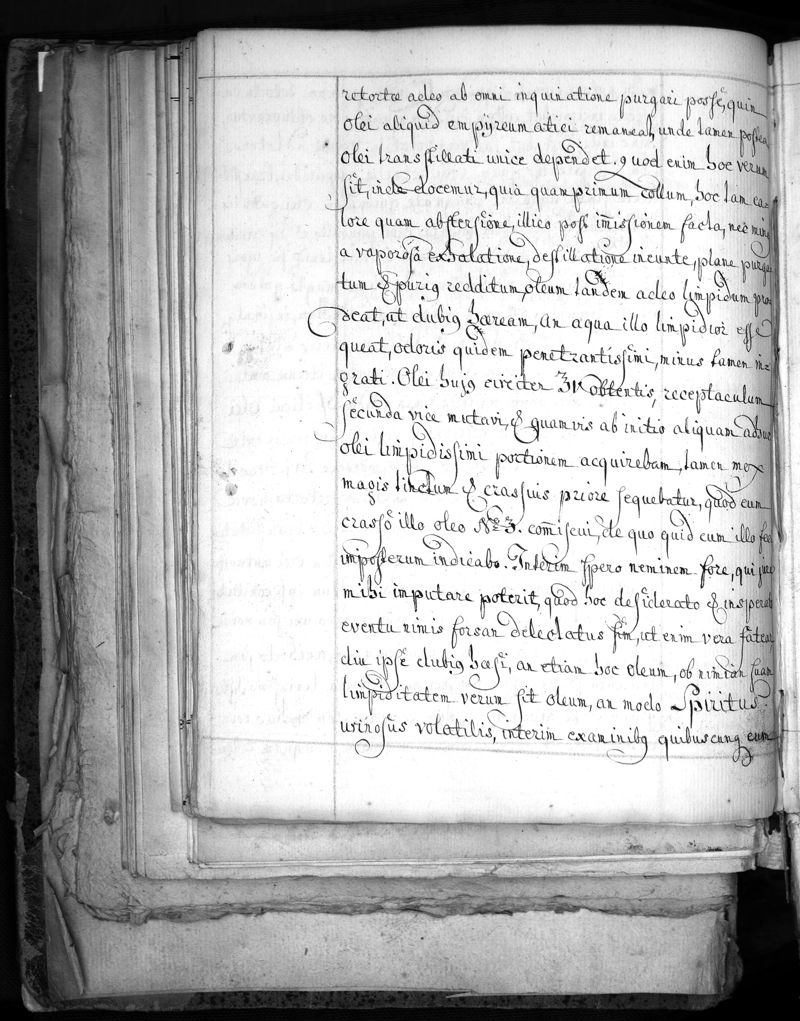 retortæ adeo ab omni inquinatione purgari posse, quin
olei aliquid empyreumatici remaneat, unde tamen postea
olei transstillati unice dependet. quod enim hoc verum
sit, inde docemur, quia quamprimum collum, hoc tam ca=
lore quam abstersione, illico post im̄issionem facta, nec minꝗ
a vaporosa exhalatione, destillatione ineunte, plane purga
tum & purig redditum, oleum tandem adeo limpidum pro
deat, ut dubig hæream, an aqua illo limpidior esse
queat, odoris quidem penetrantissimi, minus tamen in=
grati. Olei hujg circiter obtentis, receptaculum
secunda vice mutavi, & quamvis ab initio aliquam adhuc
olei limpidissimi portionem acquirebam, tamen mox
magis tinctum & crassius priore sequebatur, quod cum
crasso illo oleo No 3. com̄iscui, de quo quid cum illo
imposterum indicabo. Interim spero neminem fore, qui jure
mihi imputare poterit, quod hoc desiderato & insperato
eventu nimis forsan delectatus sim, ut enim vera fatear
diu ipse dubig hæsi, an etiam hoc oleum, ob nimiam suam
limpiditatem verum sit oleum, an modo Spiritus
urinosus volatilis, interim examinibg quibuscunq cum